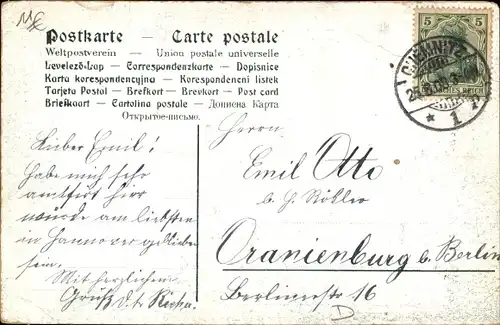 Postkarte — Carte postale
Weltpostverein — Union postale universelle
Levelező-Lap — Correspondenzkarte — Dopisnice
Karta korespondencyjna — Korespondenční lístek
Tarjeta Postal — Brefkort — Brevkort — Post card
Briefkaart — Cartolina postale — Дописна Карта
Открытое-письмо.
5 5
CHEMNITZ
DEUTSCHES REICH
* 1
Lieber Emil!
Habe mich sehr
amüsirt hier
würde am liebsten
in Hannover geblieben
sein.
Mit herzlichem
Gruß d. t.
Herrn
Emil Otto
b. H. Köhler
Oranienburg b. Berlin
Berlinerstr 16
D